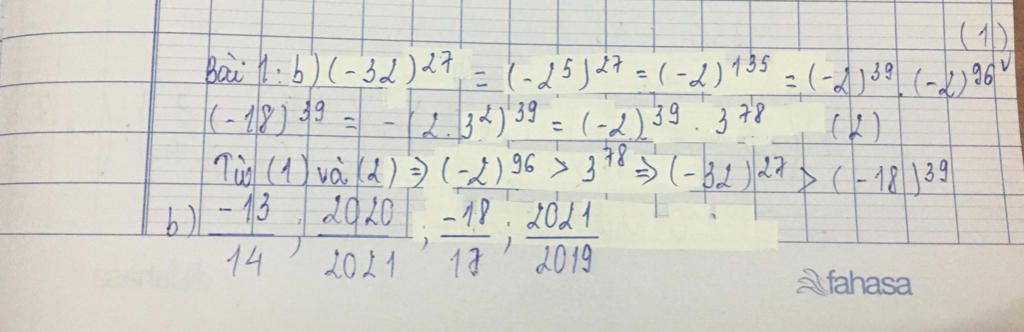 (1)
Bài 1: b) (-32)^27 = (-2^5)^27 = (-2)^135 = (-2)^39 . (-2)^96
(-18)^39 = -(2.3^2)^39 = (-2)^39 . 3^78 (2)
Từ (1) và (2) ⇒ (-2)^96 > 3^78 ⇒ (-32)^27 > (-18)^39
b) -13/14 ; 2020/2021 ; -18/17 ; 2021/2019
fahasa